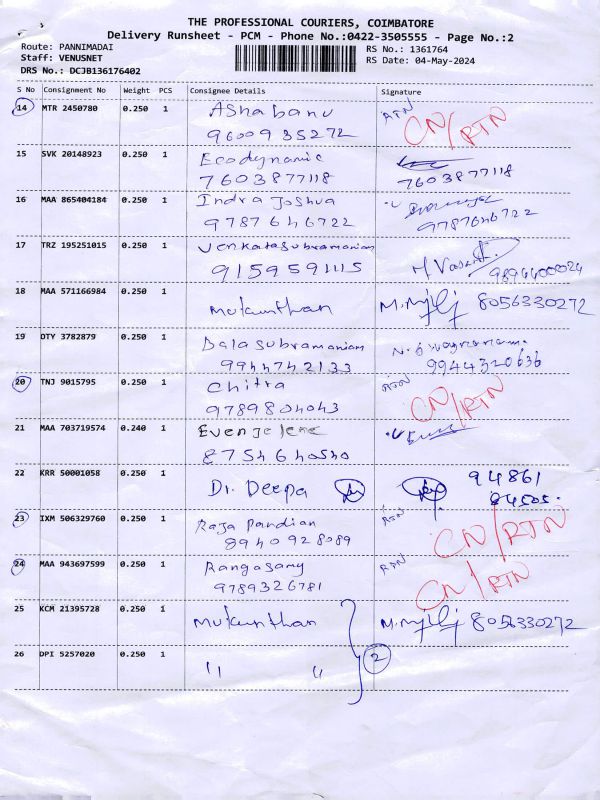 THE PROFESSIONAL COURIERS, COIMBATORE
Delivery Runsheet - PCM - Phone No.:0422-3505555 - Page No.:2
Route: PANNIMADAI
RS No.: 1361764
Staff: VENUSNET
RS Date: 04-May-2024
DRS No.: DCJB136176402
S No Consignment No Weight PCS Consignee Details Signature
14 MTR 2450780 0.250 1 Ashabanu RTN
9600935272 CN/RTN
15 SVK 20148923 0.250 1 Ecodynamic
7603877118 7603877118
16 MAA 865404184 0.250 1 Indra Joshua
9787646722 9787646722
17 TRZ 195251015 0.250 1 Venkatasubramanian
9159591115 M Vasant 9894400024
18 MAA 571166984 0.250 1 Mukunthan 8056330272
19 OTY 3782879 0.250 1 Balasubramaniam
9944742133 9944320636
20 TNJ 9015795 0.250 1 Chitra RTN
9789804043 CN/RTN
21 MAA 703719574 0.240 1 Evenjelene
8754640540
22 KRR 50001058 0.250 1 Dr. Deepa 94861
84505.
23 IXM 506329760 0.250 1 Raja Pandian RTN
8940928089 CN/RTN
24 MAA 943697599 0.250 1 Rangasamy RTN
9789326781 CN/RTN
25 KCM 21395728 0.250 1 Mukunthan 8056330272
26 DPI 5257020 0.250 1 " " 2